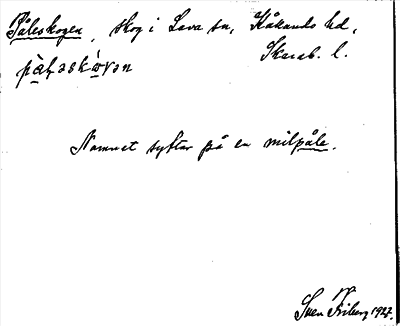 Påleskogen, skog i Lava sn, Kåkands hd,
Skarab. l.
pàləskówən
Namnet syftar på en milpåle.
Sven Friberg 1927.